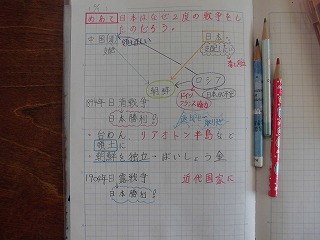 めあて 日本はなぜ2度の戦争をし
たのだろう。
中国(清)
支配
日本
支配したい
朝鮮
ロシア
ドイツ
フランス協力
1894年日清戦争
日本勝利
・台わん リアオトン半島など
領土に
・朝鮮を独立・ばいしょう金
1904年日露戦争 近代国家に
日本勝利